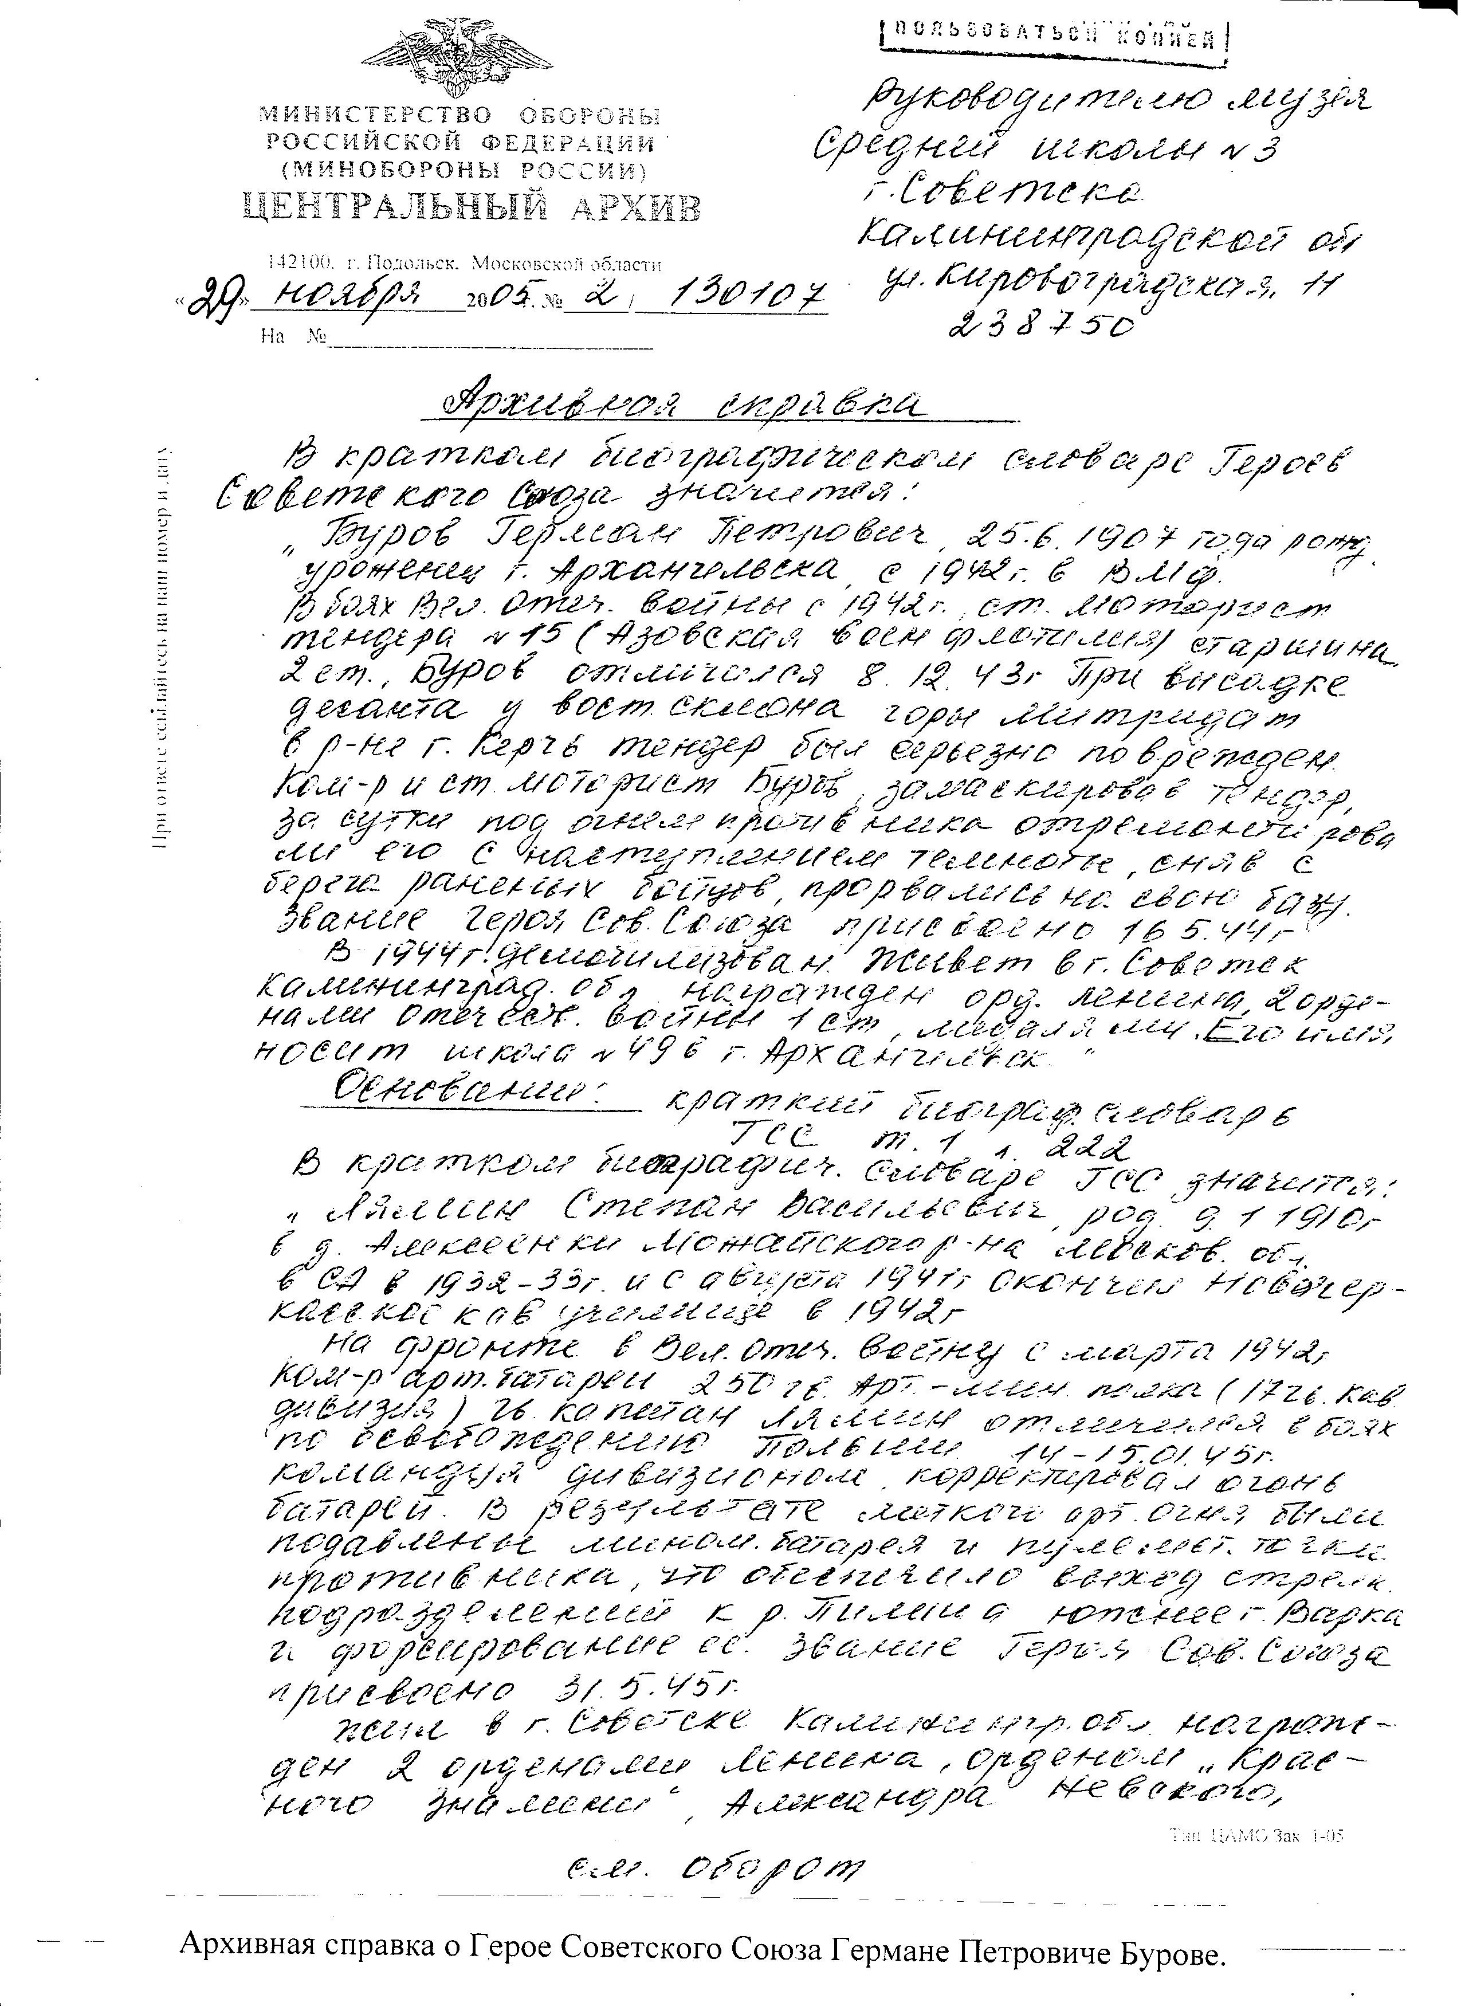 ПОЛЬЗОВАТЬСЯ КОПИЕЙ
МИНИСТЕРСТВО ОБОРОНЫ
РОССИЙСКОЙ ФЕДЕРАЦИИ
(МИНОБОРОНЫ РОССИИ)
ЦЕНТРАЛЬНЫЙ АРХИВ
142100, г. Подольск, Московской области
«29» ноября 2005 г. № 2/130107
На №
Руководителю музея
Средней школы №3
г. Советска
Калининградской об
ул. Кировоградская, 11
238750
При ответе ссылайтесь на наш номер и дату
Архивная справка
В кратком биографическом словаре Героев
Советского Союза значится:
„Буров Герман Петрович, 25.6.1907 года рожд.
уроженец г. Архангельска, с 1942г. в ВМФ.
В боях Вел. Отеч. войны с 1942г., ст. моторист
тендера №15 (Азовская воен флотилия) старшина
2 ст., Буров отличился 8.12.43г При высадке
десанта у вост. склона горы Митридат
в р-не г. Керчь тендер был серьезно поврежден.
Ком-р и ст. моторист Буров, замаскировав тендер,
за сутки под огнем противника отремонтирова
ли его с наступлением темноты, сняв с
берега раненых бойцов, прорвались на свою базу.
Звание Героя Сов. Союза присвоено 16.5.44г
В 1944г. демобилизован. Живет в г. Советск
Калининград. обл. награжден орд. Ленина, 2 орде-
нами Отечеств. войны 1 ст, медалями. Его имя
носит школа №49 в г. Архангельск."
Основание: краткий биограф. словарь
ГСС т. 1 л. 222
В кратком биографич. словаре ГСС значится:
„Лямин Степан Васильевич, род. 9.1 1910г
в д. Алексеенки Можайского р-на Москов. обл.
в СА в 1932-33г. и с августа 1941г окончил Новочер-
касское кав училище в 1942г
На фронте в Вел. Отеч. войну с марта 1942г
ком-р арт. батареи 250 гв. Арт.-мин. полка (17 гв. кав
дивизия) гв. капитан Лямин отличился в боях
по освобождению Польши 14-15.01.45г.
командуя дивизионом, корректировал огонь
батарей. В результате меткого арт. огня были
подавлены мином. батарея и пулемет. точки
противника, что обеспечило выход стрелк.
подразделений к р. Пилица южнее г. Варка
и форсирование ее. Звание Героя Сов. Союза
присвоено 31.5.45г.
Жил в г. Советске Калинингр. обл. награж-
ден 2 орденами Ленина, орденом „Крас-
ного Знамени", Александра Невского,
Тип. ЦАМО Зак. 1-05
см. оборот
Архивная справка о Герое Советского Союза Германе Петровиче Бурове.